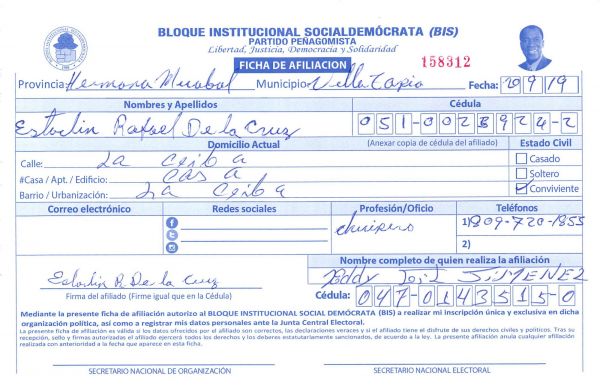 BLOQUE INSTITUCIONAL SOCIALDEMÓCRATA (BIS)
PARTIDO PEÑAGOMISTA
Libertad, Justicia, Democracia y Solidaridad
FICHA DE AFILIACION 158312
Provincia: Hermana Mirabal Municipio: Villa Tapia Fecha: 20 9 19
Nombres y Apellidos Cédula
Estarlin Rafael De la Cruz 051-0028924-2
Domicilio Actual (Anexar copia de cédula del afiliado) Estado Civil
Calle: La Ceiba Casado
#Casa / Apt. / Edificio: Casa Soltero
Barrio / Urbanización: La Ceiba Conviviente
Correo electrónico Redes sociales Profesión/Oficio Teléfonos
1) 809-720-1855
2)
Nombre completo de quien realiza la afiliación
Estarlin R De la Cruz Eddy José JIMENEZ
Firma del afiliado (Firme igual que en la Cédula) Cédula: 047-0143515-0
Mediante la presente ficha de afiliación autorizo al BLOQUE INSTITUCIONAL SOCIAL DEMÓCRATA (BIS) a realizar mi inscripción única y exclusiva en dicha
organización política, así como a registrar mis datos personales ante la Junta Central Electoral.
La presente ficha de afiliación es válida si los datos ofrecidos por el afiliado son correctos, las declaraciones veraces y si el afiliado tiene el disfrute de sus derechos civiles y políticos. Tras su
recepción, sello y firmas autorizadas el afiliado ejercerá todos los derechos y los deberes estatutariamente sancionados, de acuerdo a la ley. La presente afiliación anula cualquier afiliación
realizada con anterioridad a la fecha que aparece en esta ficha.
SECRETARIO NACIONAL DE ORGANIZACIÓN SECRETARIO NACIONAL ELECTORAL